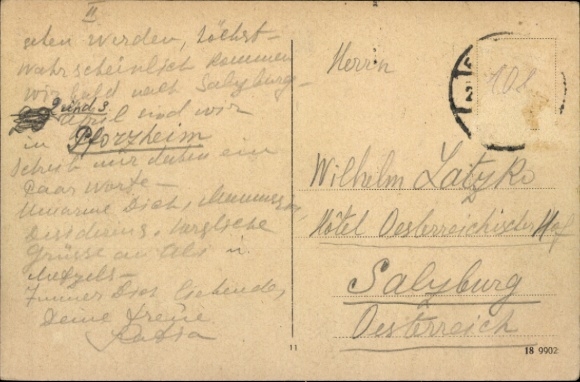 II
Werden, höchst-
Wahrscheinlich kommen
Wir bald nach Salzburg-
2 und 3 April sind wir
in Pforzheim
Schreib mir dahin ein
Paar Worte-
Umarme Dich,
Desiderius, herzliche
Grüsse an
Immer Dich liebende,
Deine treue
Herrn
Wilhelm Latzko
Hôtel Oesterreichischer Hof
Salzburg
Oesterreich
11
18 9902